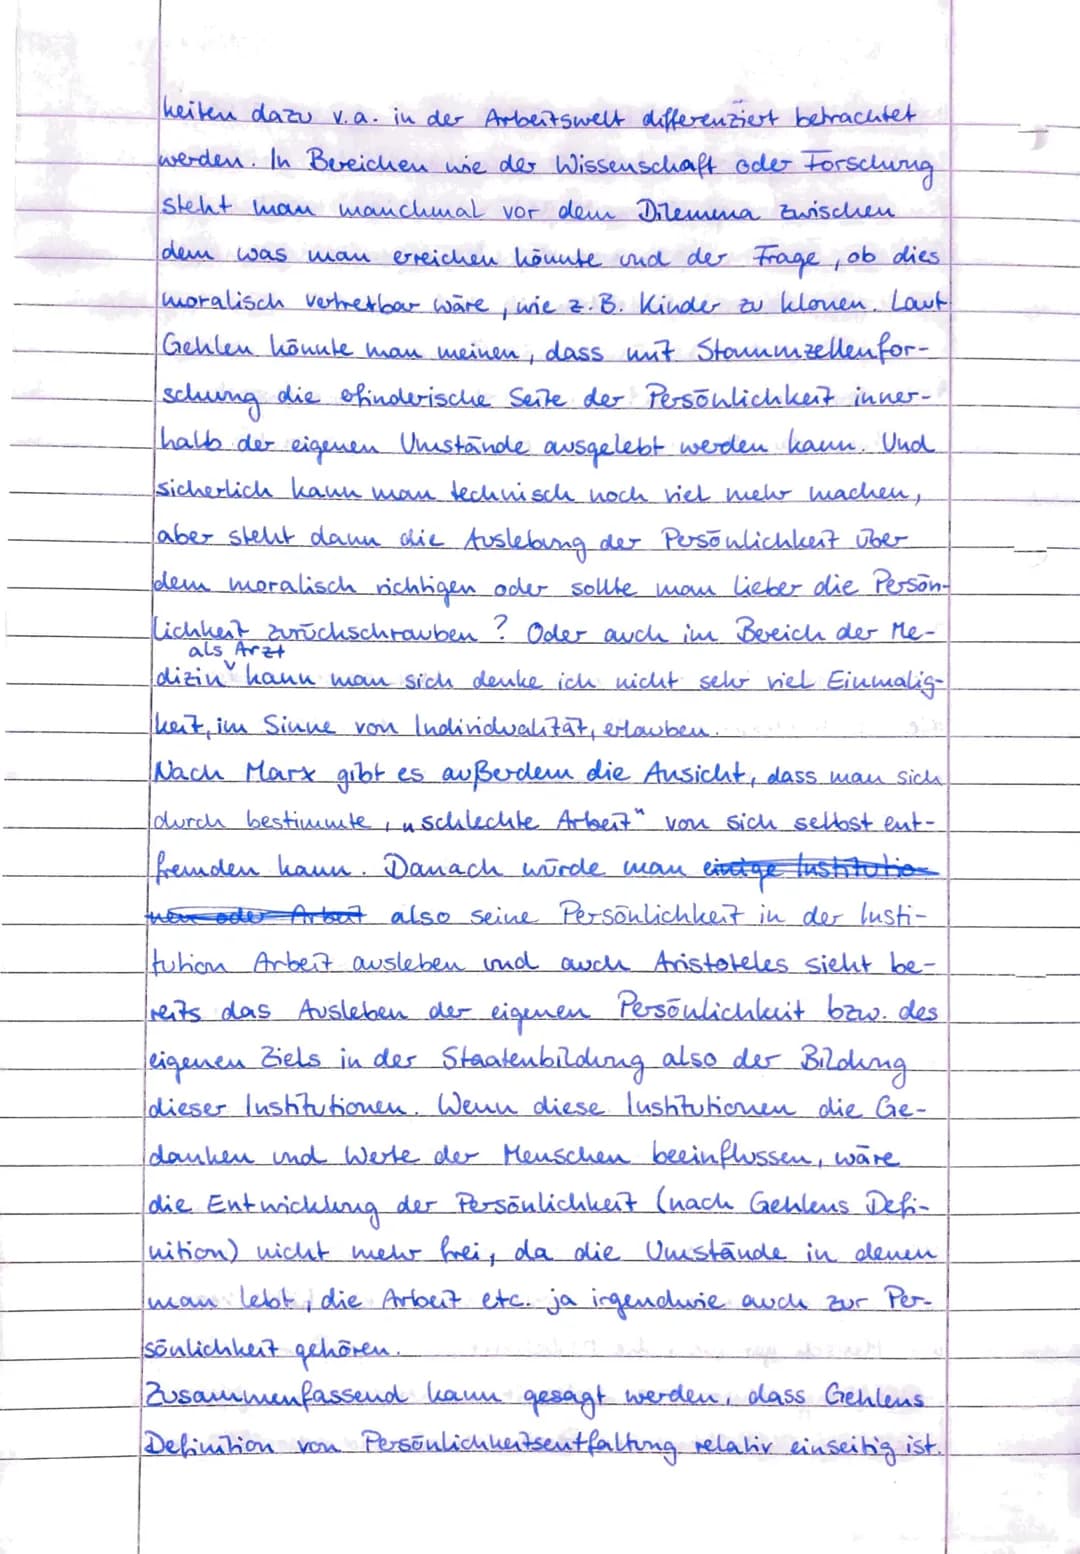 keiten dazu v.a. in der Arbeitswelt differenziert betrachtet
werden. In Bereichen wie der Wissenschaft oder Forschung
steht man manchmal vor dem Dilemma zwischen
dem was man erreichen könnte und der Frage, ob dies
moralisch vertretbar wäre, wie z.B. Kinder zu klonen. Laut
Gehlen könnte man meinen, dass mit Stammzellenfor-
schung die efinderische Seite der Persönlichkeit inner-
halb der eigenen Umstände ausgelebt werden kann. Und
sicherlich kann man technisch noch viel mehr machen,
aber steht dann die Auslebung der Persönlichkeit über
dem moralisch richtigen oder sollte man lieber die Persön-
lichkeit zurückschrauben? Oder auch im Bereich der Me-
als Arzt
dizin kann man sich denke ich nicht sehr viel Einmalig-
keit, im Sinne von Individualität, erlauben.
Nach Marx gibt es außerdem die Ansicht, dass man sich
durch bestimmte, „schlechte Arbeit" von sich selbst ent-
fremden kann. Danach würde man einige Institutio-
nen oder Arbeit also seine Persönlichkeit in der Insti-
tution Arbeit ausleben und auch Aristoteles sieht be-
reits das Ausleben der eigenen Persönlichkeit bzw. des
eigenen Ziels in der Staatenbildung also der Bildung
dieser Institutionen. Wenn diese Institutionen die Ge-
danken und Werte der Menschen beeinflussen, wäre
die Entwicklung der Persönlichkeit (nach Gehlens Defi-
nition) nicht mehr frei, da die Umstände in denen
man lebt, die Arbeit etc. ja irgendwie auch zur Per-
sönlichkeit gehören.
Zusammenfassend kann gesagt werden, dass Gehlens
Definition von Persönlichkeitsentfaltung relativ einseitig ist.